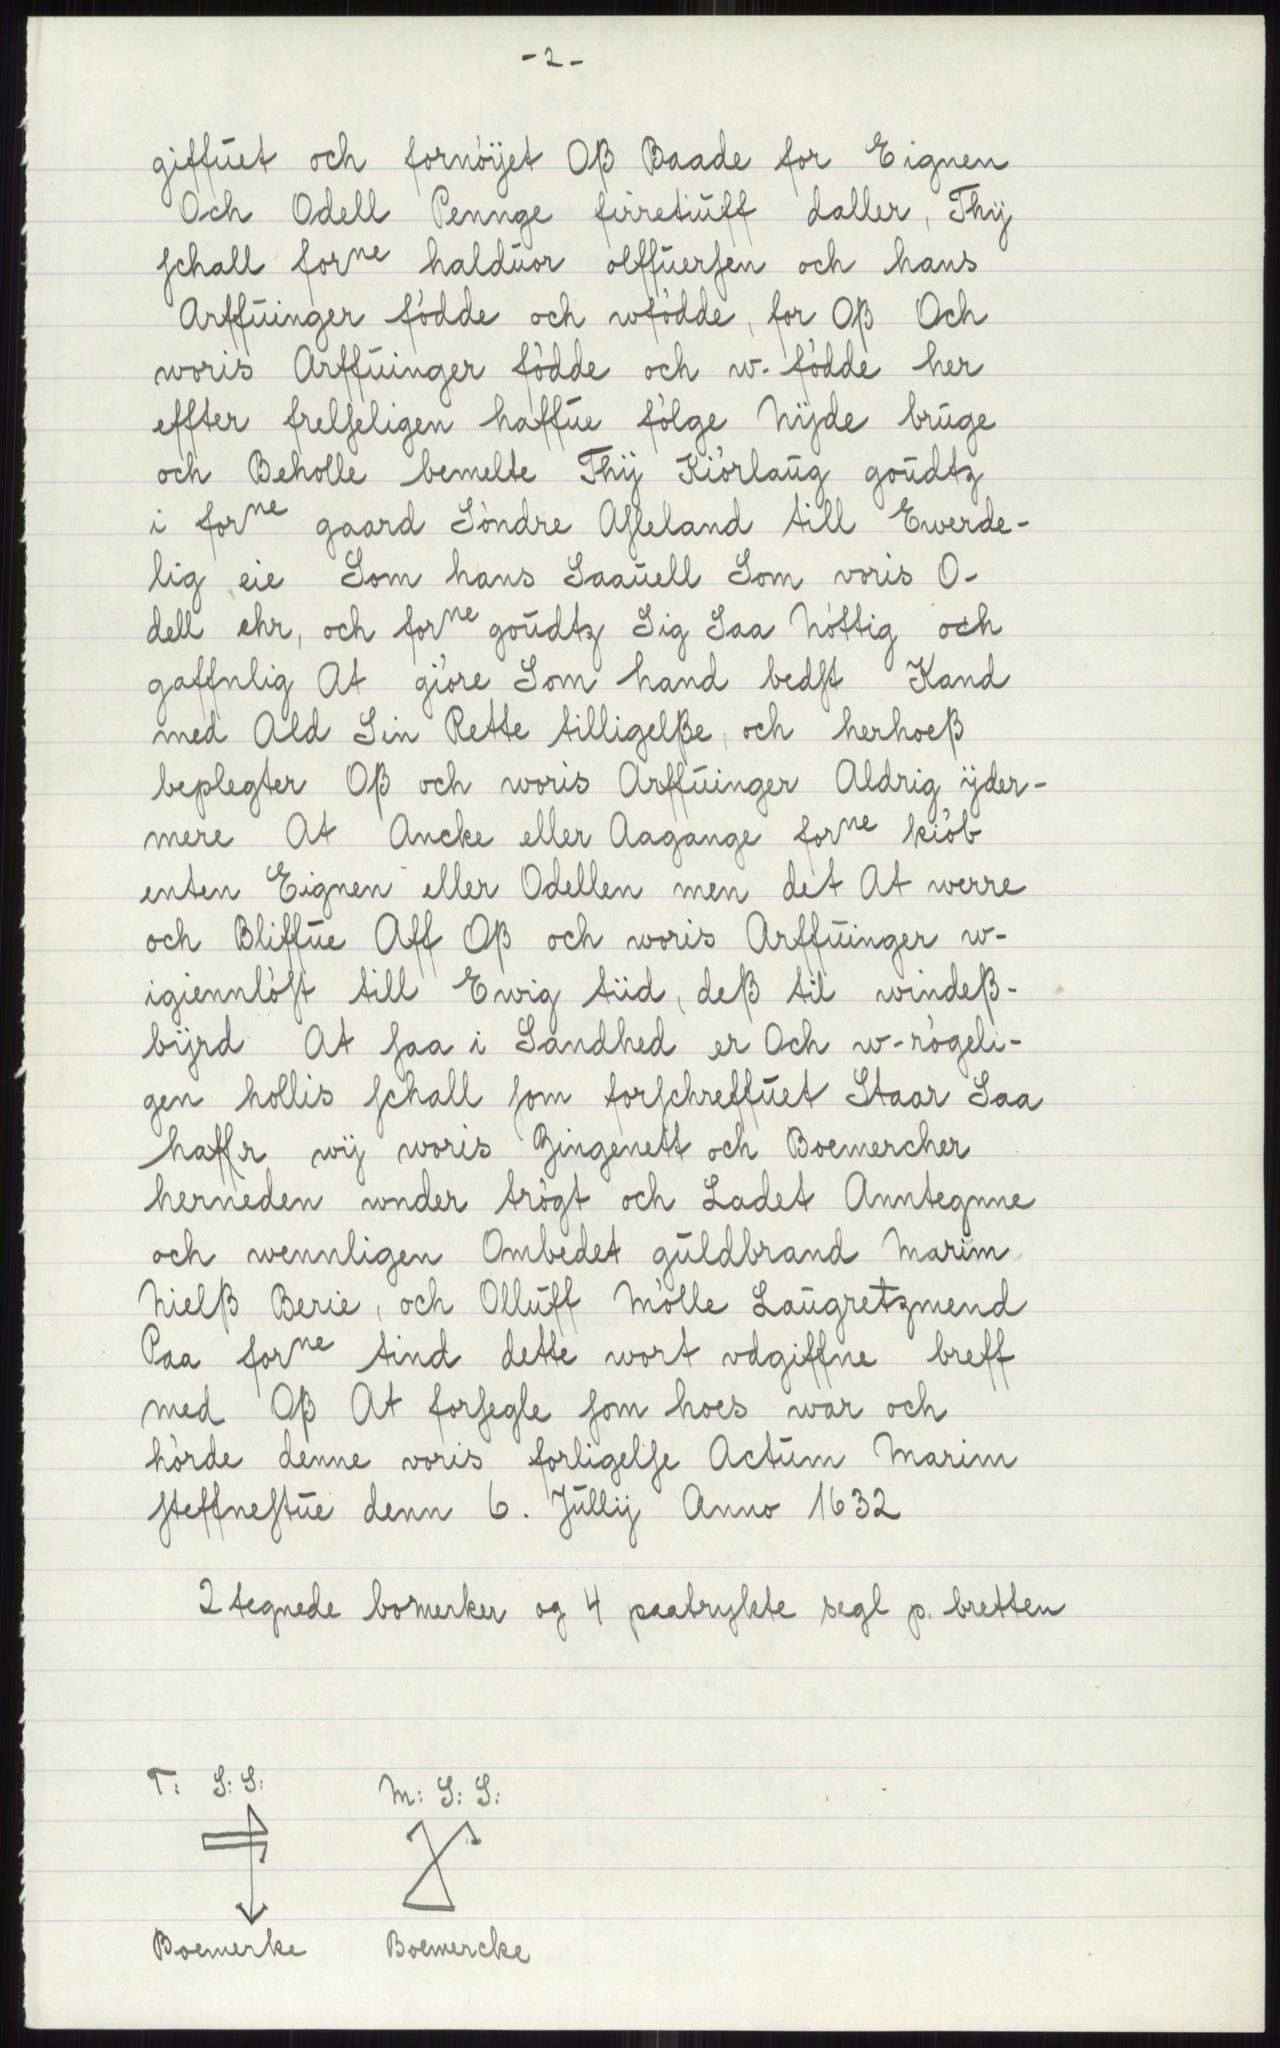 - 2 -
giffuet och fornöijet Oß Baade for Eignen
Och Odell Pennge firretiuff daller, Thij
schall forne halduor olffuersen och hans
Arffuinger födde och wfödde, for Oß Och
woris Arffuinger födde och w-födde her
effter frelseligen haffue fölge Nijde bruge
och Beholle bemelte Thij Kiörlaug goudtz
i forne gaard Söndre Asleland till Ewerde-
lig eie Som hans Saauell Som voris O-
dell ehr, och forne goudtz Sig Saa Nöttig och
gaffnlig At giöre Som hand bedst Kand
med Ald Sin Rette tilligelße, och herhoeß
beplegter Oß och woris Arffuinger Aldrig ijder-
mere At Ancke eller Aagange forne kiöb
enten Eignen eller Odellen men det At werre
och Bliffue Aff Oß och woris Arffuinger w-
igiennlöst till Ewig tiid, deß til windeß-
bijrd At saa i Sandhed er Och w-rögeli-
gen hollis schall som forschreffuet Staar Saa
haffr wij woris Zingenett och Boemercher
herneden wnder trögt och Ladet Anntegnne
och wennligen Ombedet guldbrand Marim
Nielß Berie, och Olluff Mölle Laugretzmend
Paa forne tind dette wort vdgiffne breff
med Oß At forsegle som hoes war och
hörde denne voris forligelse Actum Marim
steffnestue denn 6. Jullij Anno 1632
2 tegnede bomerker og 4 paatrykte segl p. bretten
T: S: S: M: S: S:
Boemerke Boemercke